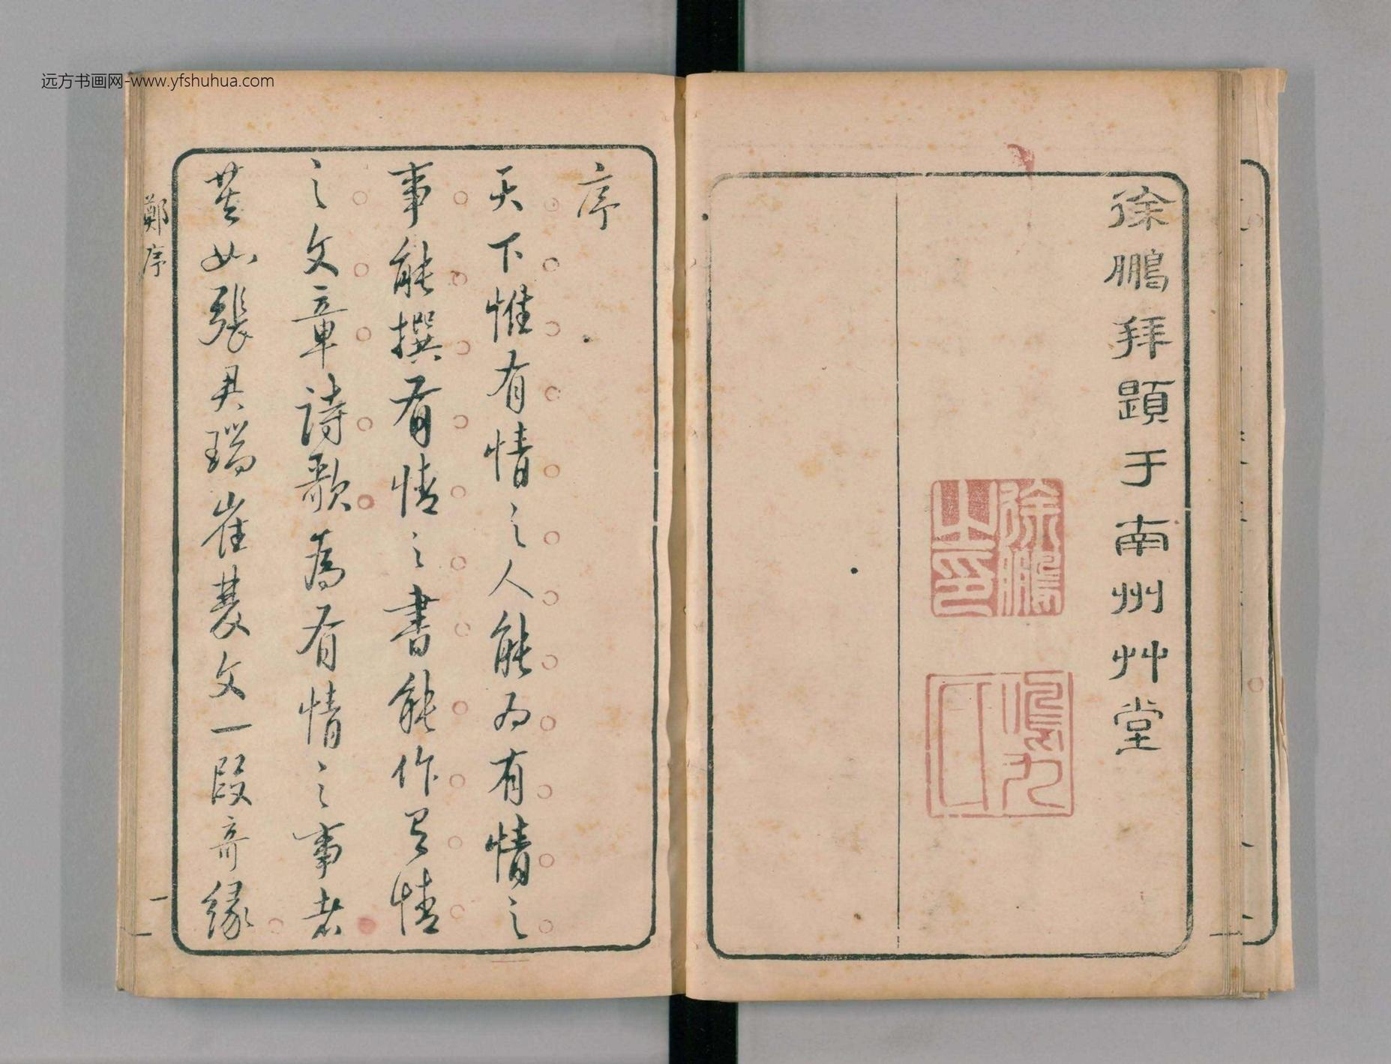 远方书画网-www.yfshuhua.com
徐鵬拜題于南州艸堂
徐鵬
之印
序
天下惟有情之人能为有情之
事能撰有情之書能作有情
之文章詩歌為有情之事者
莫如張君瑞崔雙文一段奇緣
鄭序
一